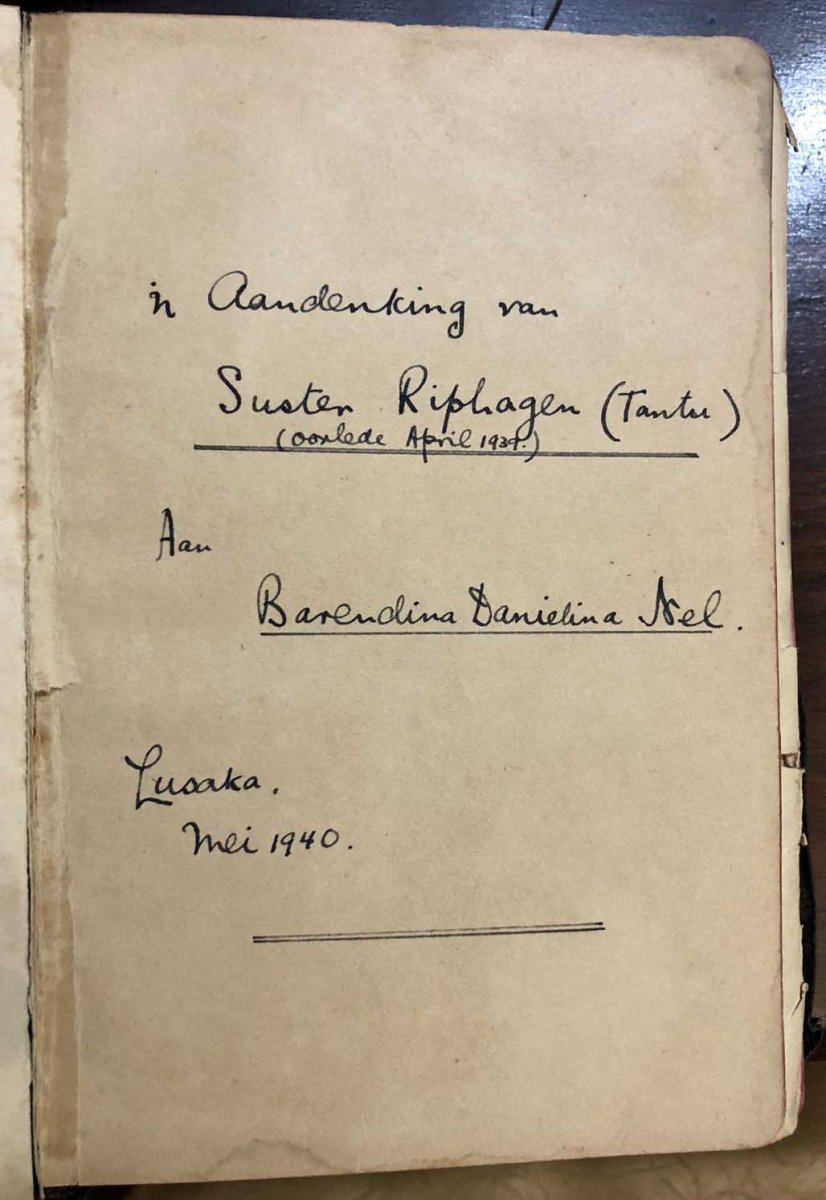 'n Aandenking van
Suster Riphagen (Tantu)
(oorlede April
Aan
Barendina Danielina Nel.
Lusaka.
Mei 1940.